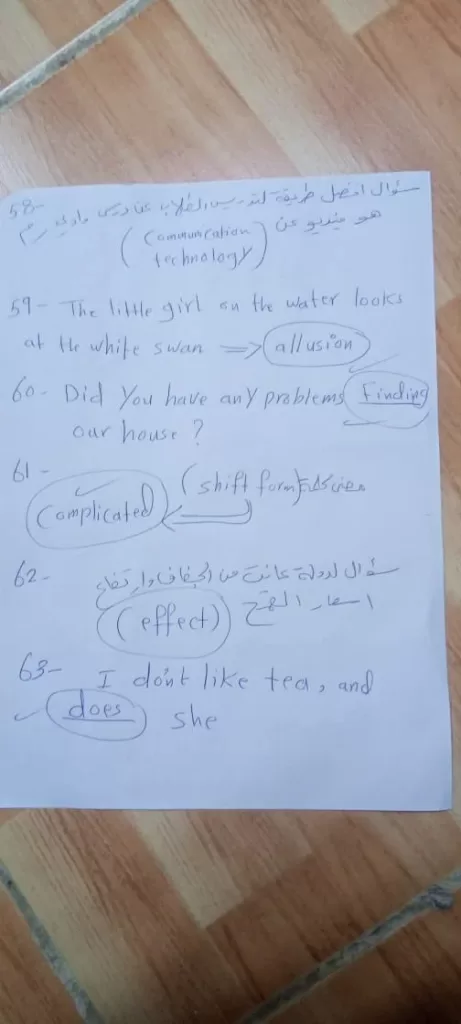 58- سؤال افضل طريقة لتدريس الطلاب عن درس وادي رم
هو فيديو عن (Communication
technology)
59- The little girl on the water looks
at the white swan => allusion
60- Did you have any problems Finding
our house?
61- (shift form) معنى كلمة
Complicated
62- سؤال لدولة عانت من الجفاف وارتفاع
اسعار القمح (effect)
63- I don't like tea, and
does she